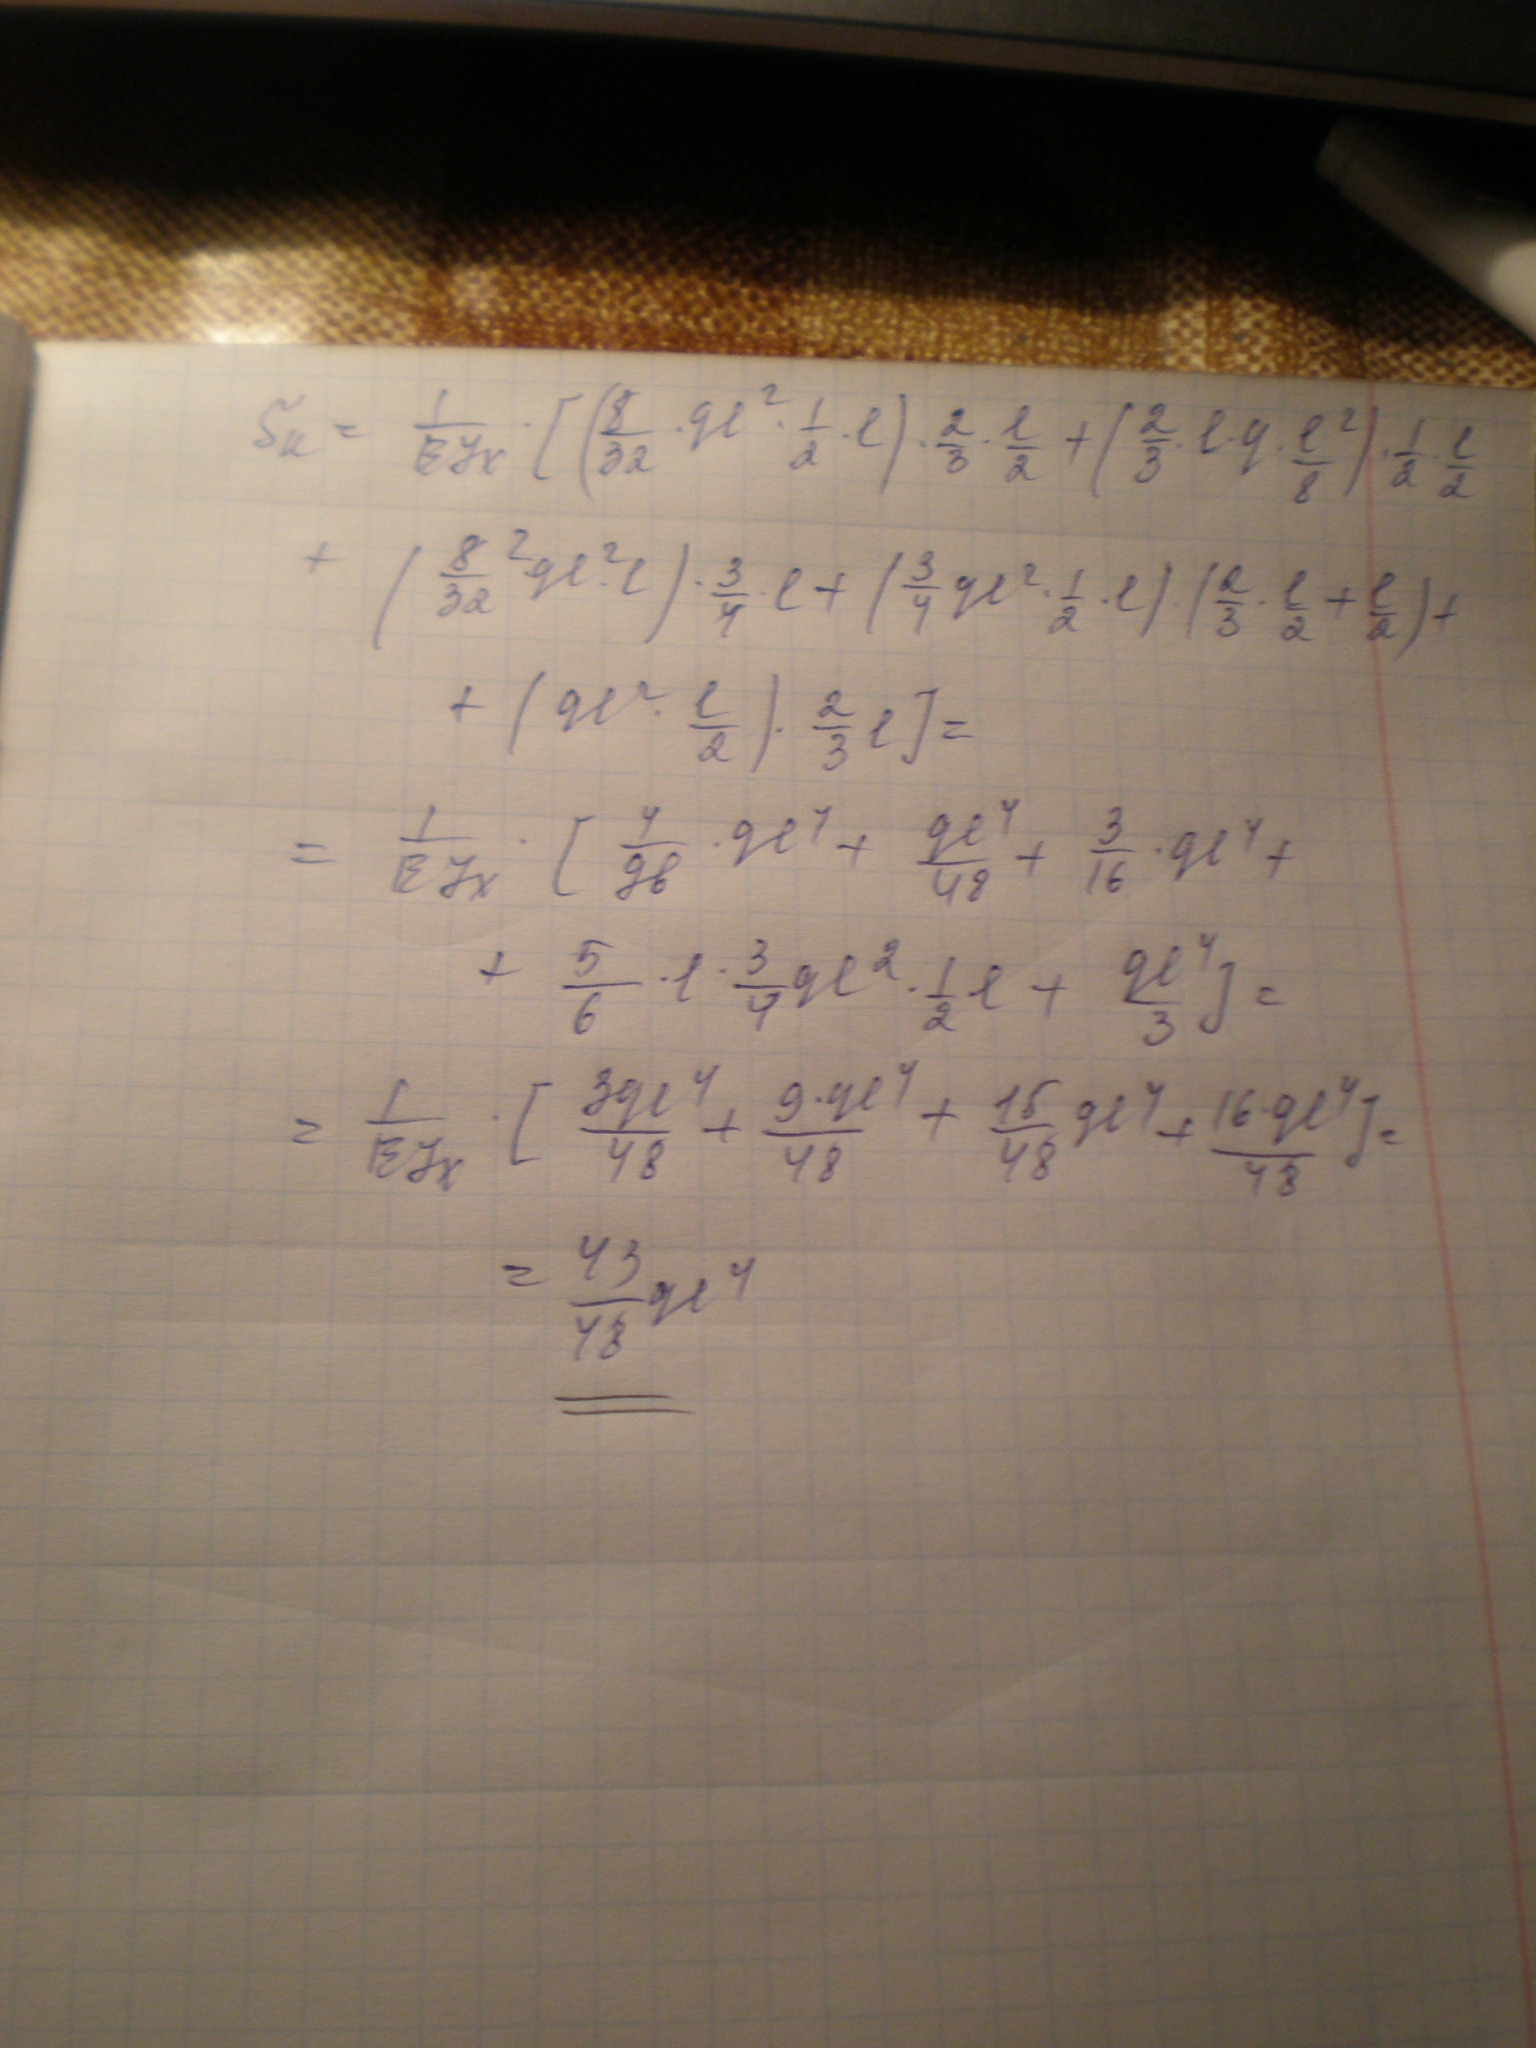 δ_к = 1/EJx · [(8/32 · ql² · 1/2 · l) · 2/3 · l/2 + (2/3 · l · q · l²/8) · 1/2 · l/2
+ (8/32 ² ql² · l) · 3/4 · l + (3/4 ql² · 1/2 · l) · (2/3 · l/2 + l/2) +
+ (ql² · l/2) · 2/3 l] =
= 1/EJx · [4/96 · ql⁴ + ql⁴/48 + 3/16 · ql⁴ +
+ 5/6 · l · 3/4 ql² · 1/2 l + ql⁴/3] =
= 1/EJx · [3ql⁴/48 + 9·ql⁴/48 + 15/48 ql⁴ + 16·ql⁴/48] =
= 43/48 ql⁴